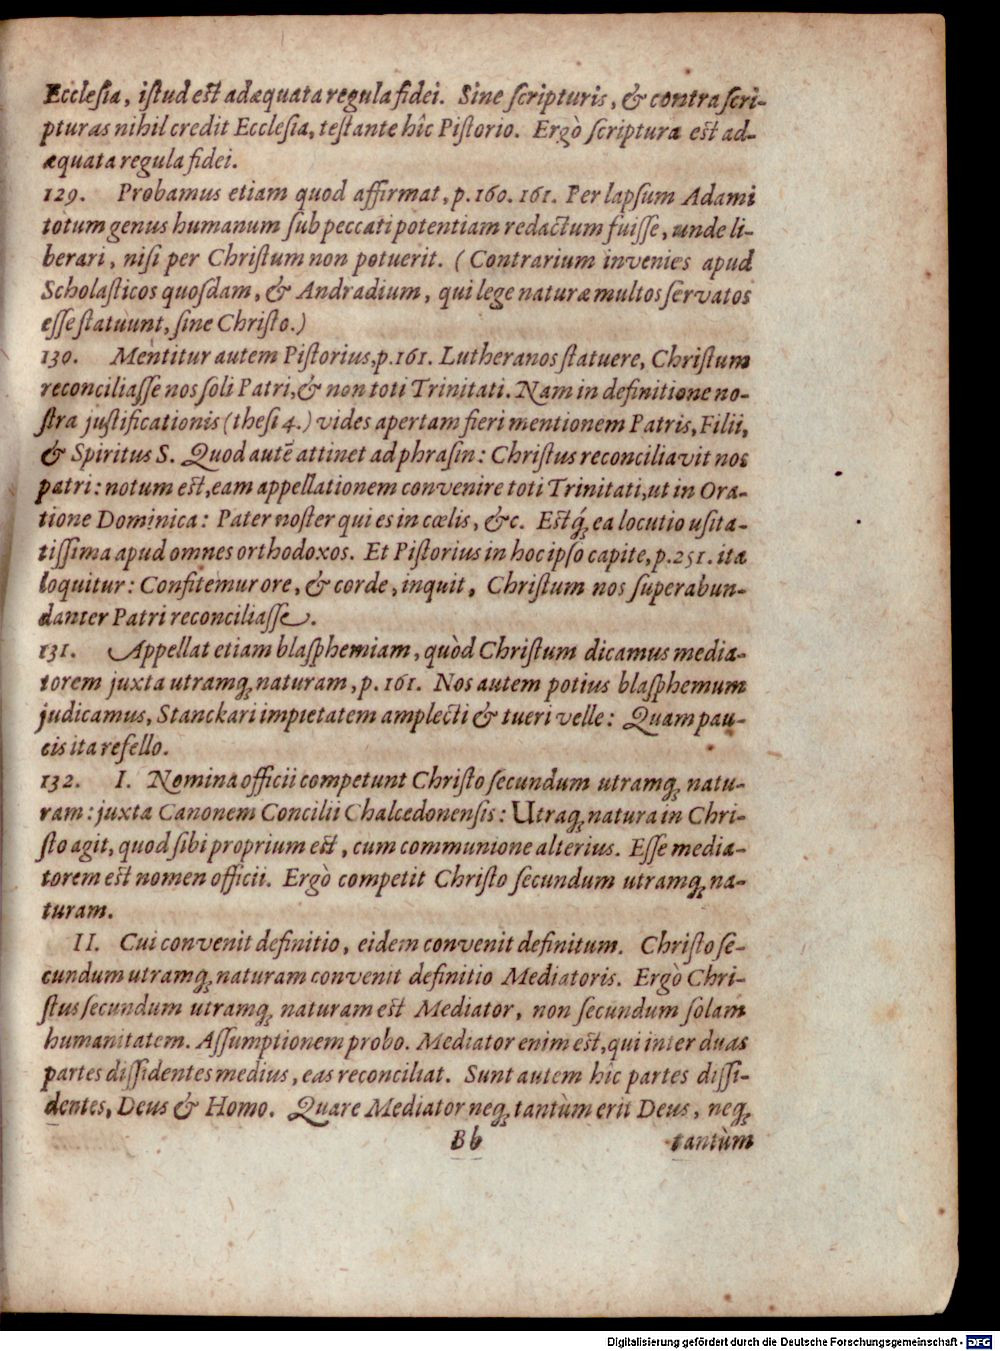 Ecclesia, istud est adæquata regula fidei. Sine scripturis, & contra scri-
pturas nihil credit Ecclesia, testante hîc Pistorio. Ergò scriptura est ad-
æquata regula fidei.
129. Probamus etiam quod affirmat, p. 160. 161. Per lapsum Adami
totum genus humanum sub peccati potentiam redactum fuisse, unde li-
berari, nisi per Christum non potuerit. (Contrarium invenies apud
Scholasticos quosdam, & Andradium, qui lege naturæ multos servatos
esse statuunt, sine Christo.)
130. Mentitur autem Pistorius, p. 161. Lutheranos statuere, Christum
reconciliasse nos soli Patri, & non toti Trinitati. Nam in definitione no-
stra justificationis (thesi 4.) vides apertam fieri mentionem Patris, Filii,
& Spiritus S. Quod autē attinet ad phrasin: Christus reconciliavit nos
patri: notum est, eam appellationem convenire toti Trinitati, ut in Ora-
tione Dominica: Pater noster qui es in cœlis, &c. Estq́; ea locutio usita-
tissima apud omnes orthodoxos. Et Pistorius in hoc ipso capite, p. 251. ita
loquitur: Confitemur ore, & corde, inquit, Christum nos superabun-
danter Patri reconciliasse.
131. Appellat etiam blasphemiam, quòd Christum dicamus media-
torem juxta utramq; naturam, p. 161. Nos autem potius blasphemum
judicamus, Stanckari impietatem amplecti & tueri velle: Quam pau-
cis ita refello.
132. I. Nomina officii competunt Christo secundum utramq; natu-
ram: juxta Canonem Concilii Chalcedonensis: Utraq; natura in Chri-
sto agit, quod sibi proprium est, cum communione alterius. Esse media-
torem est nomen officii. Ergò competit Christo secundum utramq; na-
turam.
II. Cui convenit definitio, eidem convenit definitum. Christo se-
cundum utramq; naturam convenit definitio Mediatoris. Ergò Chri-
stus secundum utramq; naturam est Mediator, non secundum solam
humanitatem. Assumptionem probo. Mediator enim est, qui inter duas
partes dissidentes medius, eas reconciliat. Sunt autem hîc partes dissi-
dentes, Deus & Homo. Quare Mediator neq; tantùm erit Deus, neq;
Bb tantùm
Digitalisierung gefördert durch die Deutsche Forschungsgemeinschaft - DFG